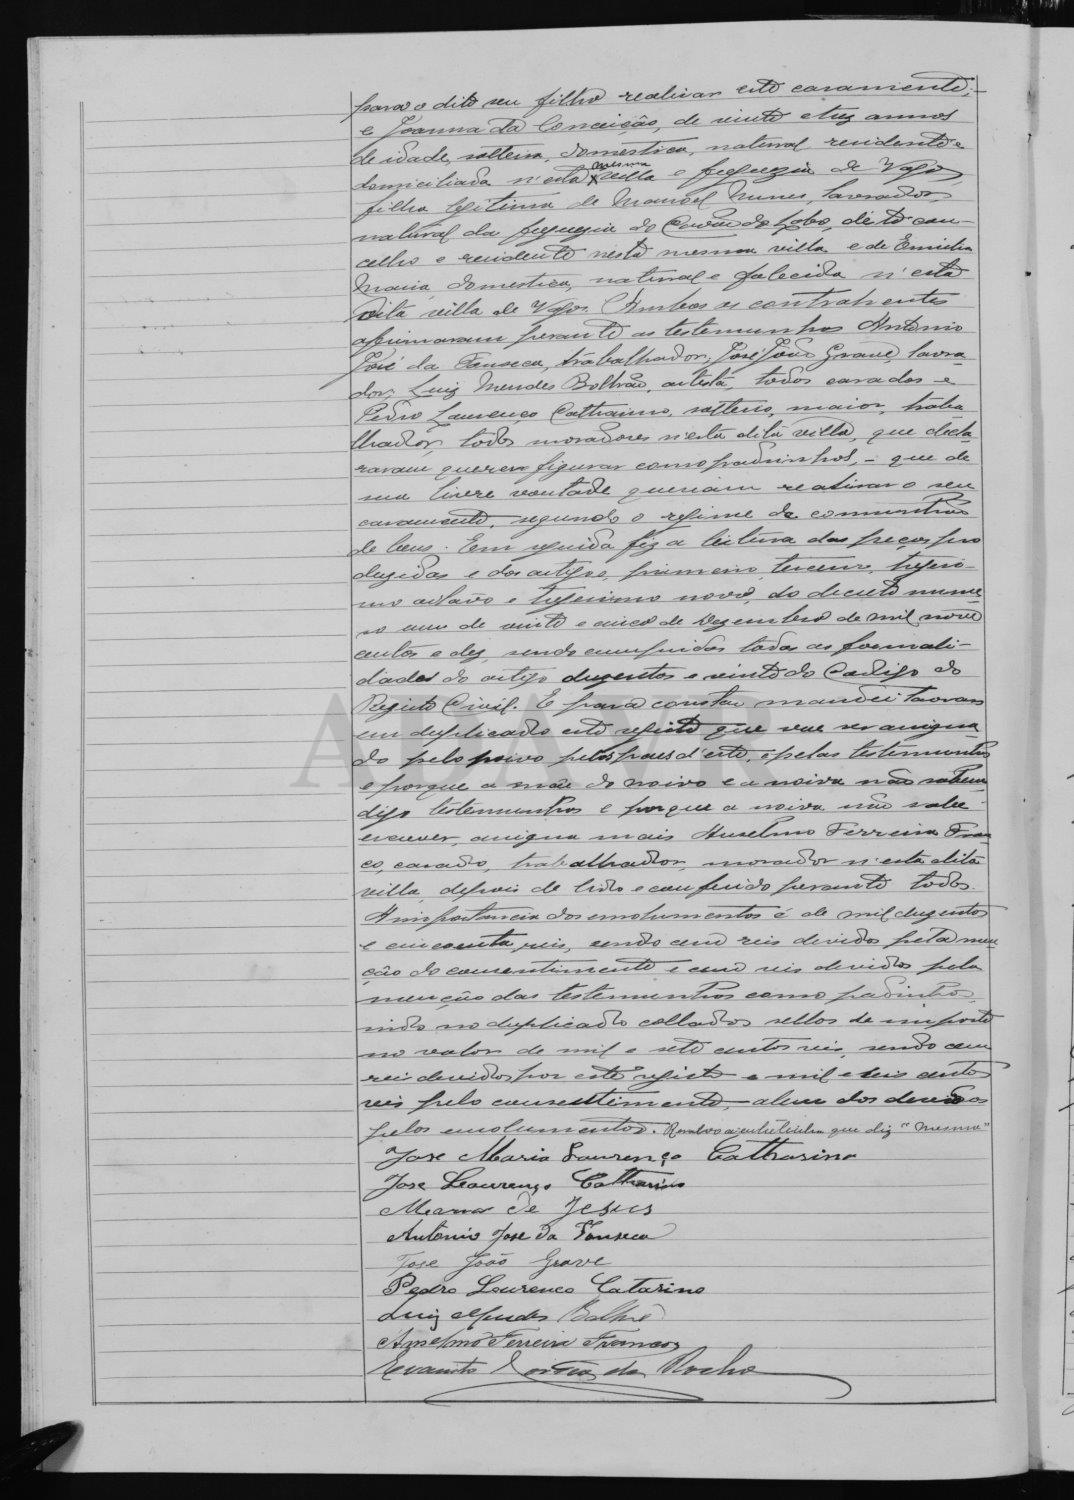 para o dito seu filho realisar este casamento;
e Joanna da Conceição, de vinte e trez annos
de idade, solteira, domestica, natural, residente e
domiciliada n'esta mesma villa e freguezia de Vagos,
filha legitima de Manoel Nunes, lavrador,
natural da freguezia do Covão do Lobo, deste con-
celho e residente nesta mesma villa e de Emilia
Maria, domestica, natural e falecida n'esta
dita villa de Vagos. Ambos os contrahentes
afirmaram perante as testemunhas Antonio
José da Fonseca, trabalhador; José João Grave, lavra-
dor; Luiz Mendes Bolhão, artista, todos casados e
Pedro Lourenço Catharino, solteiro, maior, traba-
lhador, todos moradores n'esta dita villa, que decla-
raram querer figurar como padrinhos, - que de
sua livre vontade queriam realisar o seu
casamento, segundo o regime da communhão
de bens. Em seguida fiz a leitura das peças pro-
duzidas e dos artigos, primeiro, terceiro, trigesi-
mo oitavo e trigesimo nono, do decreto nume-
ro um de vinte e cinco de Dezembro de mil nove
centos e dez, sendo cumpridas todas as formali-
dades do artigo duzentos e vinte do Codigo do
Registo Civil. E para constar mandei lavrar
em duplicado este registo que vae ser assigna-
do pelo noivo, pelos paes d'este, e pelas testemunhas
e porque a mãe do noivo e a noiva não sabem
digo testemunhas e porque a noiva não sabe
escrever, assigna mais Anselmo Ferreira Fran-
co, casado, trabalhador, morador n'esta dita
villa, depois de lido e conferido perante todos.
A importancia dos emolumentos é de mil duzentos
e cincoenta reis, sendo cem reis devidos pela men-
ção do consentimento e cem reis devidos pela
menção das testemunhas como padrinhos,
indo no duplicado collados sellos de imposto
no valor de mil e sete centos reis, sendo cem
reis devidos por este registo e mil e seis centos
reis pelo consentimento, alem dos devidos
pelos emolumentos. Resalvo a entrelinha que diz "mesma"
Jose Maria Lourenço Catharino
Jose Lourenço Catharino
Maria de Jesus
Antonio Jose da Fonseca
Jose João Grave
Pedro Lourenco Catarino
Luiz Mendes Bolhão
Anselmo Ferreira Franco
Evaristo da Rocha
ADAVR